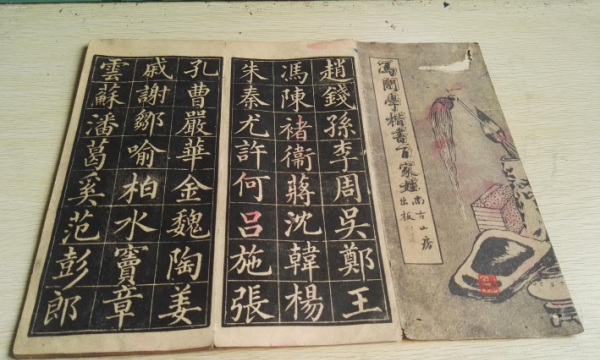 楷書百家姓
尚古山房
出版
趙錢孫李周吳鄭王
馮陳褚衛蔣沈韓楊
朱秦尤許何呂施張
孔曹嚴華金魏陶姜
戚謝鄒喻柏水竇章
雲蘇潘葛奚范彭郎